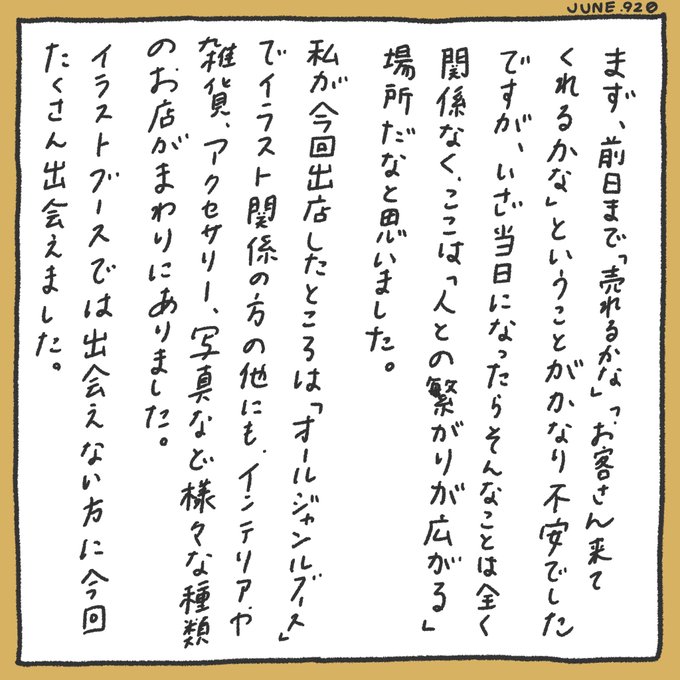 JUNE.920
まず、前日まで「売れるかな」「お客さん来て
くれるかな」ということがかなり不安でした
ですが、いざ当日になったらそんなことは全く
関係なく、ここは「人との繋がりが広がる」
場所だなと思いました。
私が今回出店したところは「オールジャンルブース」
でイラスト関係の方の他にも、インテリアや
雑貨、アクセサリー、写真など様々な種類
のお店がまわりにありました。
イラストブースでは出会えない方に今回
たくさん出会えました。